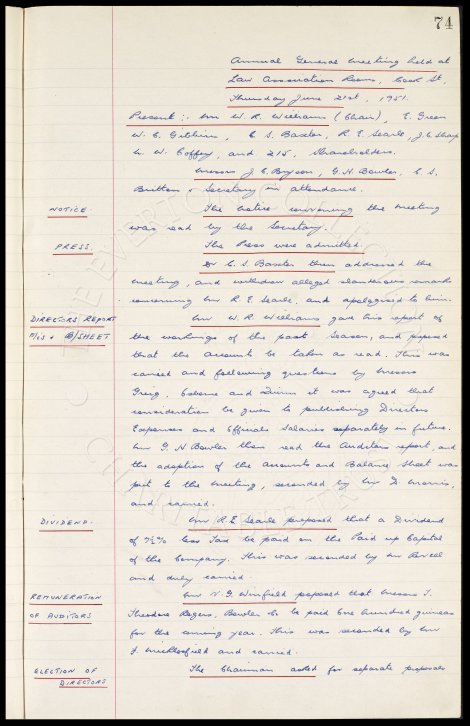 74
Annual General Meeting held at
Law Association Rooms, Cook St,
Thursday June 21st, 1951.
Present :- Mr W. R. Williams (Chair), E. Green
W. C. Gibbins, C S. Baxter, R. E. Searle, J. C. Sharp
W. Coffey, and 215, Shareholders.
Messrs J. C. Bryson, G. H. Bowler, C. S.
Britton & Secretary in attendance.
NOTICE.
The Notice convening the meeting
was read by the Secretary.
PRESS.
The Press were admitted.
Dr C. S. Baxter then addressed the
meeting, and withdrew alleged slanderous remarks
concerning Mr R. E. Searle, and apologised to him.
DIRECTORS REPORT
& B/SHEET
Mr W. R. Williams gave his report of
the workings of the past Season, and proposed
that the accounts be taken as read. This was
carried and following questions by Messrs
Greig, Osborne and Quinn it was agreed that
consideration be given to publishing Directors
Expenses and Officials Salaries separately in future.
Mr G. H Bowler then read the Auditors report, and
the adoption of the Accounts and Balance Sheet was
put to the meeting, seconded by Mr D Morris,
and carried.
DIVIDEND.
Mr R. E. Searle proposed that a Dividend
of 7½% less Tax be paid on the Paid up Capital
of the Company. This was seconded by Mr
and duly carried.
REMUNERATION
OF AUDITORS
Mr N. G. Winfield proposed that Messrs T.
Theodore Rogers, Bowler & Co be paid One hundred guineas
for the coming year. This was seconded by Mr
J. Micklesfield and carried.
ELECTION OF
DIRECTORS
The Chairman asked for separate proposals
THE EVERTON COLLECTION